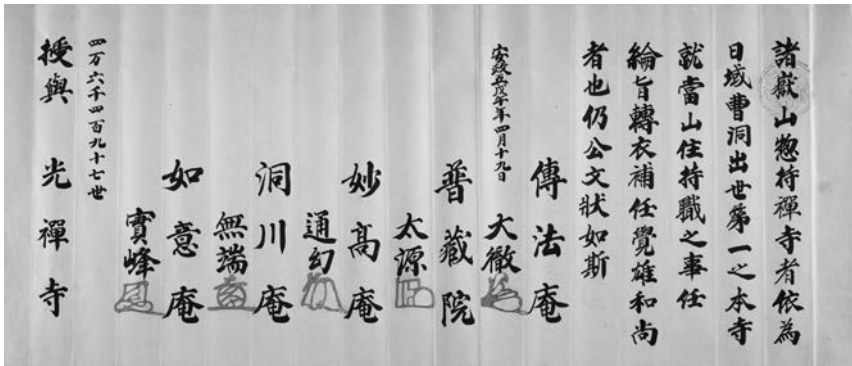 諸嶽山惣持禪寺者依為
日域曹洞出世第一之本寺
就當山住持職之事任
綸旨轉衣補任覺雄和尚
者也仍公文狀如斯
安政五戊午年四月十九日
傳法庵
大徹
普藏院
太源
妙高庵
通幻
洞川庵
無端
如意庵
實峰
四万六千四百九十七世
授與 光禪寺